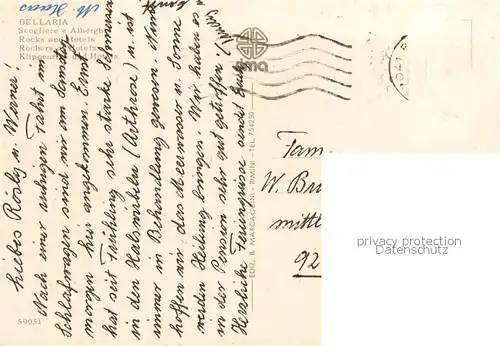 BELLARIA
Scogliere e Alberghi
Rocks and Hotels
Rochers et Hotels
Klippenreihe und Hotels
M. Haas
Liebes Rösly u. Werner!
Nach einer ruhigen Fahrt im
Schlafwagen sind wir am Samstag
morgen hier angekommen. Erna
hat seit Frühling sehr starke Schmerzen
in den Halswirbeln (Arthrose) u. ist
immer in Behandlung gewesen. Nun
hoffen wir das Meerwasser u. Sonne
werden Heilung bringen. Wir haben es
in der Pension sehr gut getroffen.
Herzliche Feriengrüsse sendet Euch
EDIZ. B. MARCACCINI - RIMINI - TEL. 754230
59051
Fam.
W. Bru
mittl
92
privacy protection
Datenschutz